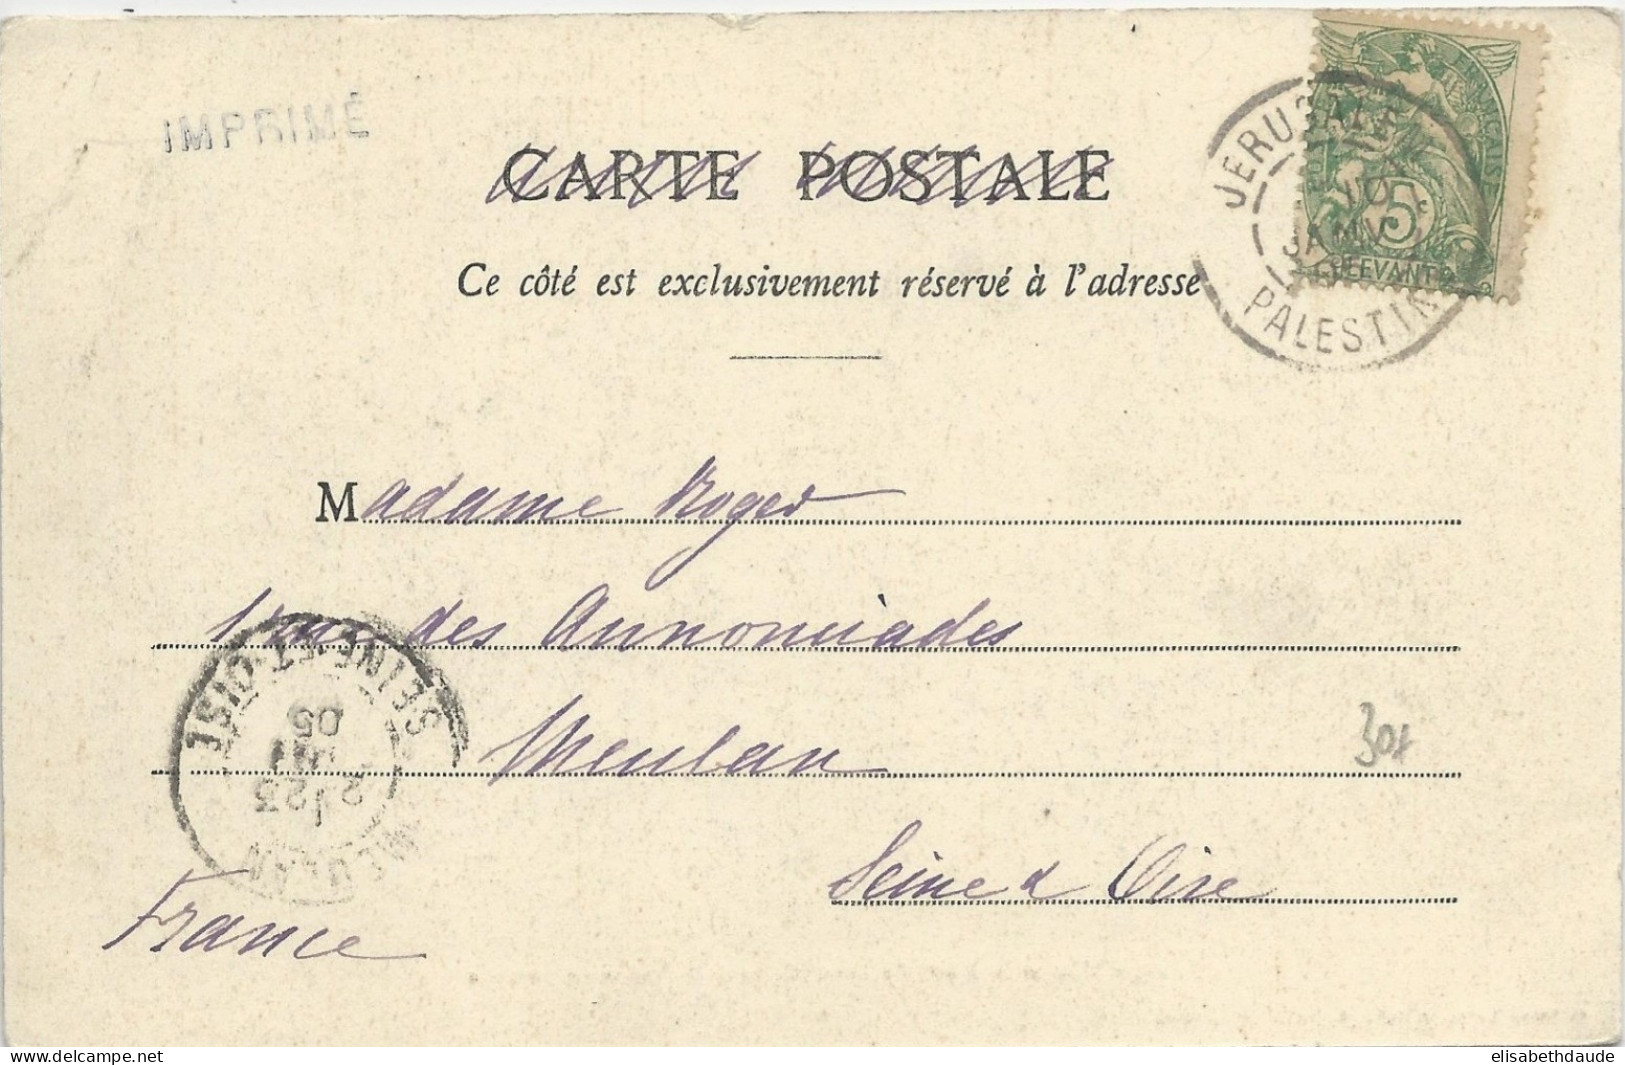 IMPRIMÉ
CARTE POSTALE
Ce côté est exclusivement réservé à l'adresse
JERUSALEM
10
JANV
PALESTINE
5
LEVANT
Madame Roger
1 rue des Annonciades
Meulan
Seine & Oise
France
MEULAN
23
05
SEINE-ET-OISE
30f
delcampe.net
elisabethdaude